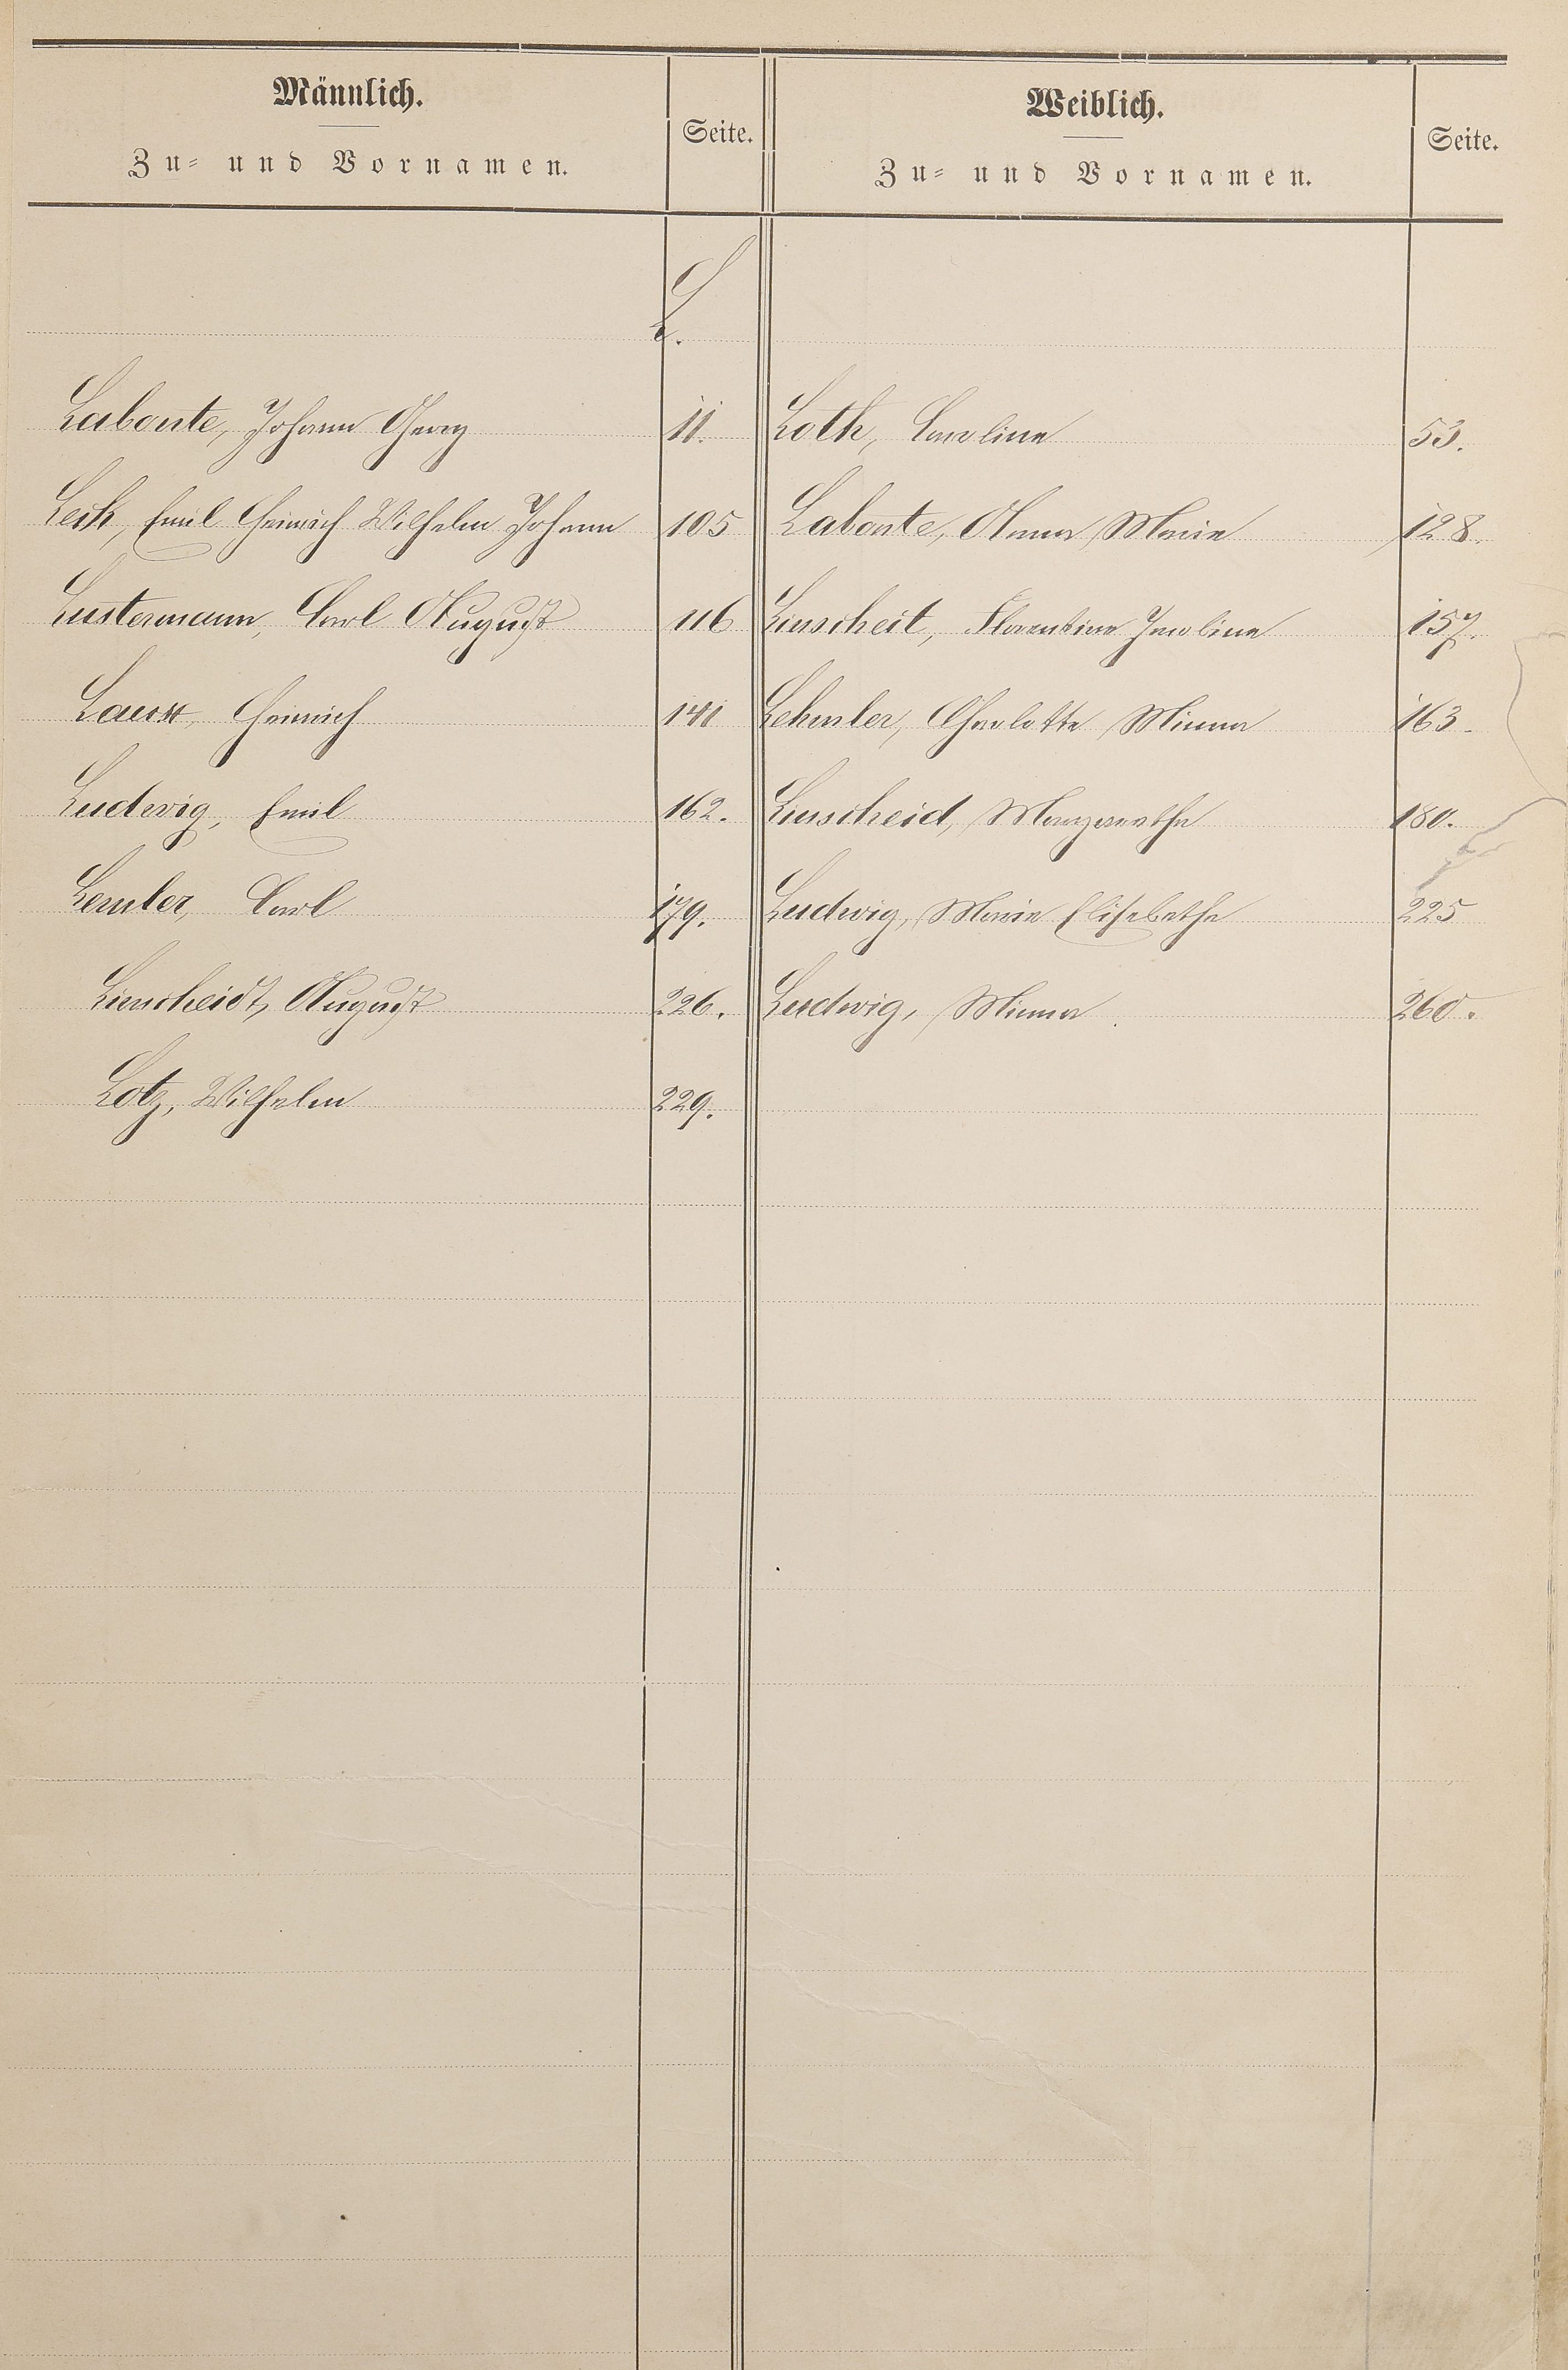 Männlich.
Zu= und Vornamen.
Seite.
Weiblich.
Zu= und Vornamen.
Seite.
L.
Labonte, Johann Georg 11. Loth, Caroline 53.
Leck, Emil Heinrich Wilhelm Johann 105 Labonte, Anna Marie 128.
Lustermann, Carl August 116 Linscheit, Florentine Jacobine 157.
Heinrich 141 Lehmler, Charlotte Minna 163.
Ludwig, Emil 162. Linscheid, Margarethe 180.
Lemler, Carl 179. Ludwig, Marie Elisabethe 225
Linscheidt, August 226. Ludwig, Minna 260.
Lotz, Wilhelm 229.